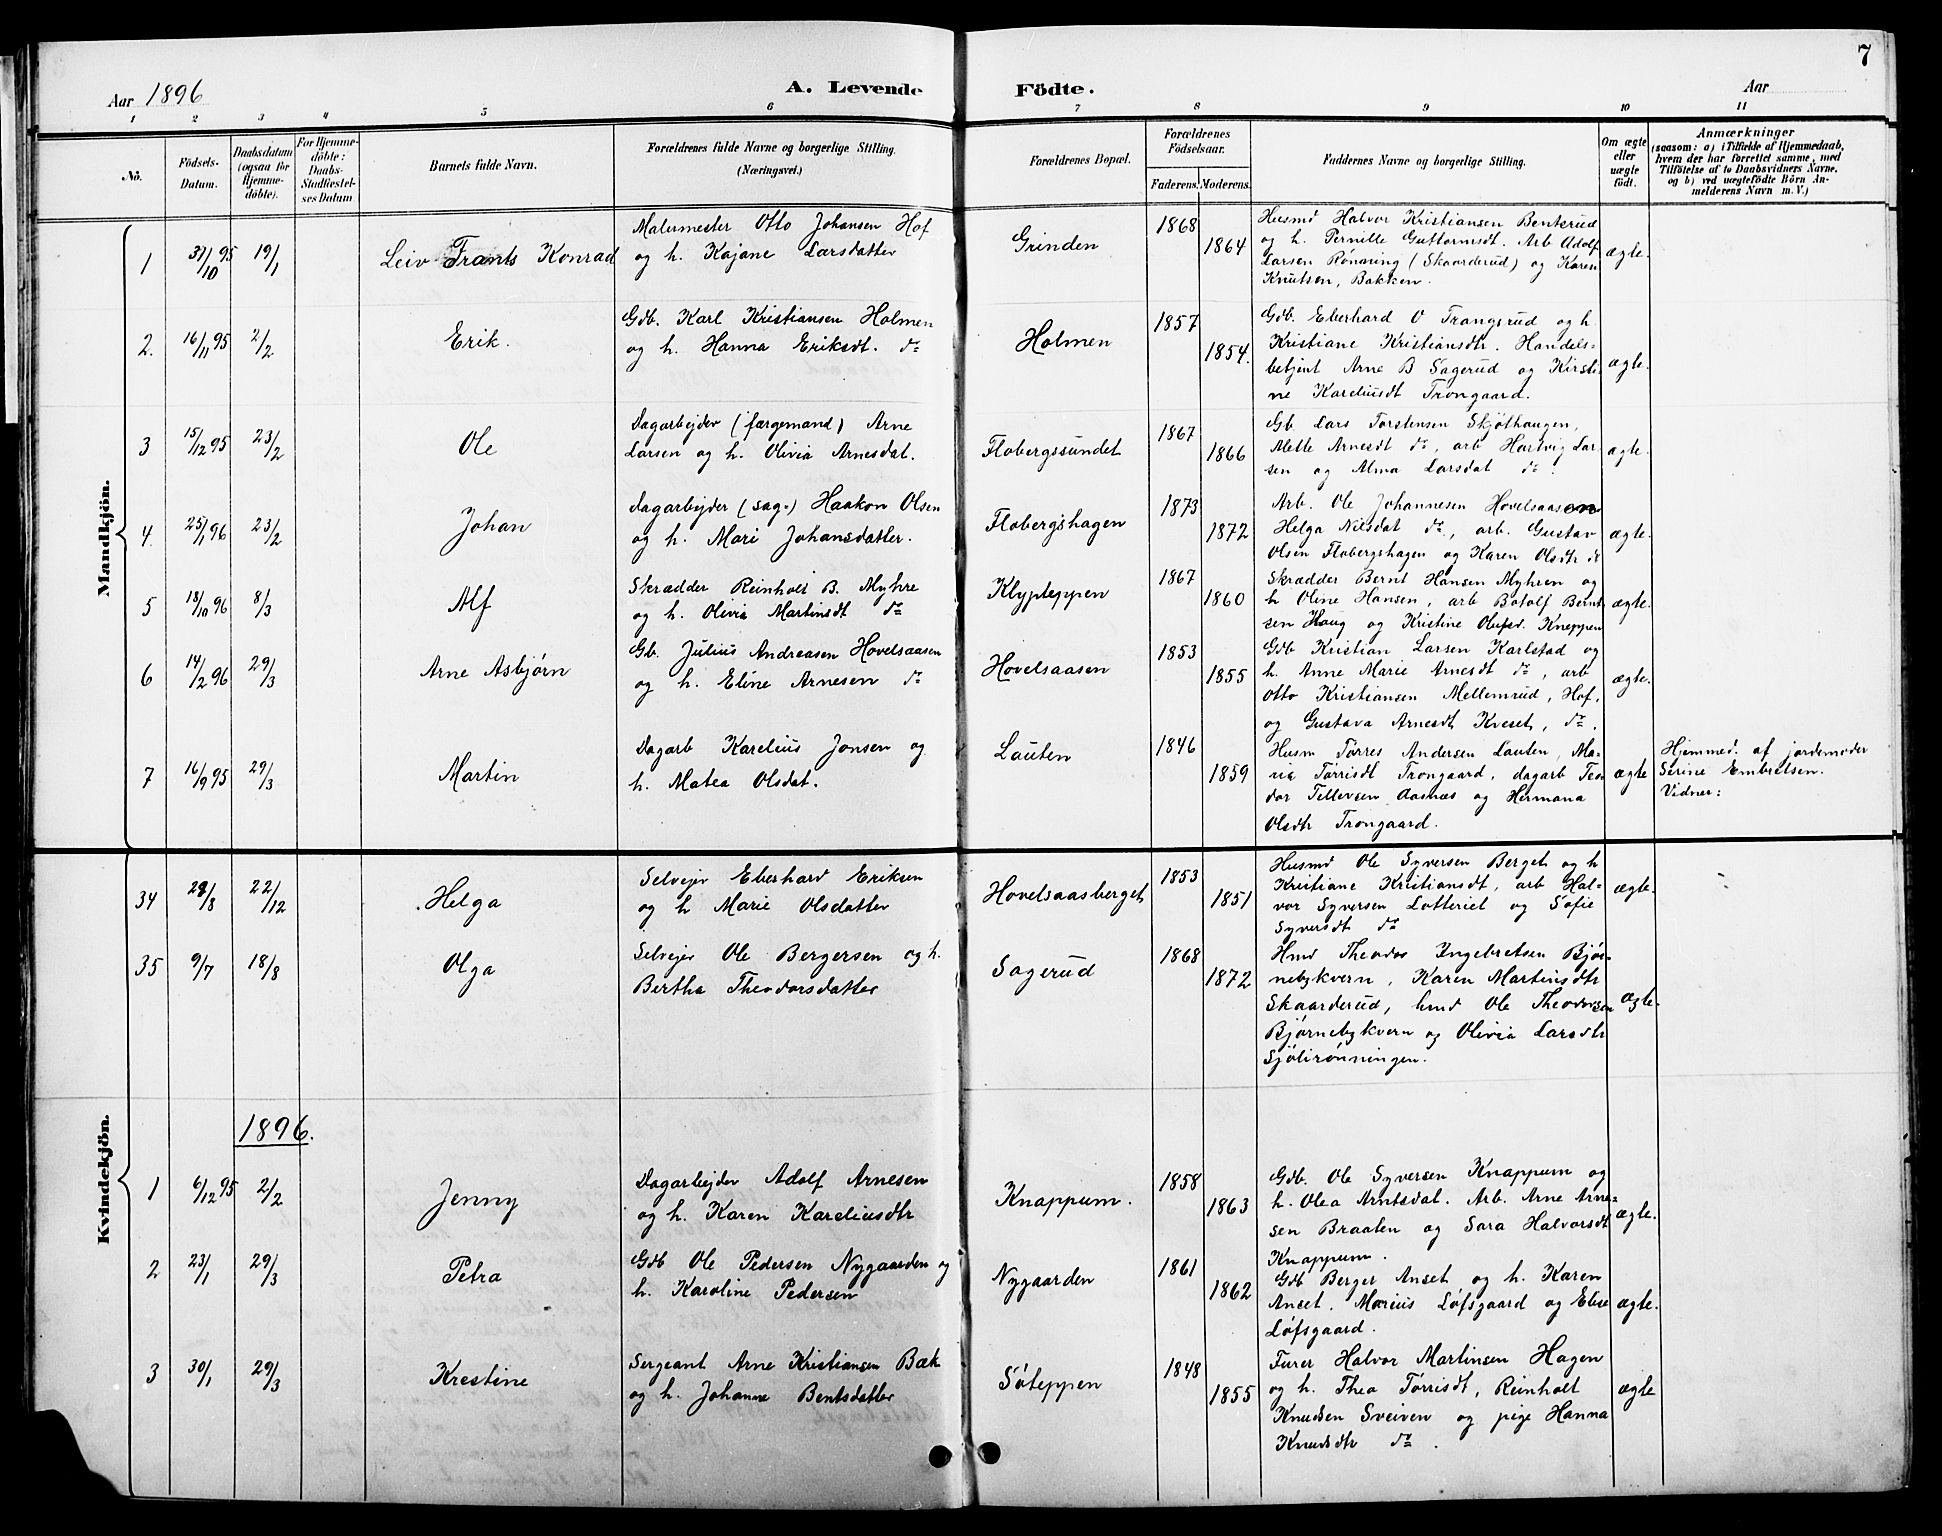 7
Aar 1896
A. Levende
Födte.
Aar
1 2 3 4 5 6 7 8 9 10 11
Nö.
Födsels-
Datum.
Daabsdatum
(ogsaa for
Hjemme-
döbte).
For Hjemme-
döbte:
Daabs-
Stadfæstel-
ses Datum
Barnets fulde Navn.
Forældrenes fulde Navne og borgerlige Stilling.
(Næringsvei.)
Forældrenes Bopæl.
Forældrenes
Födselsaar.
Faderens.
Moderens.
Faddernes Navne og borgerlige Stilling.
Om ægte
eller
uægte
födt.
Anmærkninger
(saasom: a) i Tilfælde af Hjemmedaab,
hvem der har forrettet samme, med
Tilföielse af to Daabsvidners Navne,
og b) ved uægtefödte Börn An-
melderens Navn m. V.)
Mandkjön.
1 31/10 95 19/1
Leiv Frants Konrad
Malermester Otto Johansen Hof
og h. Kajane Larsdatter
Grinden
1868
1864
Husmd Halvor Kristiansen Benterud
og h. Pernille Guttormsdt. Arb Adolf
Larsen Rönning (Skaarderud) og Karen
Knutsen, Bakken.
ægte.
2. 16/11 95 2/2
Erik.
Gdb. Karl Kristiansen Holmen
og h. Hanna Eriksdt. do
Holmen
1857
1854.
Gdb. Eberhard O Trangsrud og h.
Kristiane Kristiansdtr. Handels-
betjent Arne B Sagerud og Kirsti-
ne Kareliusdt Trongaard.
ægte.
3 15/12 95 23/2
Ole
Dagarbejder (færgemand) Arne
Larsen og h. Olivia Arnesdat.
Flobergssundet
1867
1866
Gb. Lars Torstensen Skjöthaugen,
Mette Arnesdt do, arb Hartvig Lar-
sen og Alma Larsdat do.
ægte.
4. 25/1 96 23/2
Johan
Dagarbejder (sag-) Haakon Olsen
og h. Mari Johansdatter.
Flobergshagen
1873
1872
Arb. Ole Johannesen Hovelsaasen
Helga Nilsdat do, arb. Gustav
Olsen Flobergshagen og Karen Olsdtr do
ægte.
5 18/10 96 8/3
Alf
Skrædder Reinholt B. Myhre
og h. Olivia Martinsdt do
Klypteppen
1867
1860
Skrædder Bernt Hansen Myhren og
h Oline Hansen, arb Botolf Bernt
sen Haug og Kristine Olufsd. Kneppen
ægte.
6 14/2 96 29/3
Arne Asbjørn
Gb. Julius Andreasen Hovelsaasen
og h. Eline Arnesen do
Hovelsaasen
1853
1855
Gdb Kristian Larsen Karlstad og
h. Anne Marie Arnesdt do, arb
Otto Kristiansen Mellemrud, Hof,
og Gustava Arnesdt Kveset, do.
ægte.
7 16/9 95 29/3
Martin
Dagarb Karelius Jonsen og
h. Matea Olsdat.
Lauten
1846
1859
Husm Tørres Andersen Lauten, Ma-
ria Tørrisdt Trongaard, dagarb Teo
dor Tellevsen Aasnæs og Hermana
Olsdtr Trongaard.
ægte
Hjemmed. af jordemoder
Serine Embretsen.
Vidner:
34 28/8 22/12
Helga
Selvejer Eberhard Eriksen
og h Marie Olsdatter
Hovelsaasberget
1853
1851
Husmd Ole Syversen Berget og h
Kristiane Kristiansdt, arb Hal-
vor Syversen Lotteriet og Sofie
Syversdt do
ægte.
35 9/7 18/8
Olga
Selvejer Ole Bergersen og h.
Bertha Theodorsdatter
Sagerud
1868
1872
Hmd Theodor Ingebretsen Bjør-
nebykvern, Karen Martinsdtr
Skaarderud, hmd Ole Theodorsen
Bjørnebykvern og Olivia Larsdtr
Sjölirönningen.
ægte.
Kvindekjön.
1896.
1 6/12 95 2/2
Jenny
Dagarbejder Adolf Arnesen
og h. Karen Kareliusdtr
Knappum.
1858
1863
Gdb. Ole Syversen Knappum og
h. Olea Arntsdat. Arb. Arne Arne-
sen Braaten og Sara Halvorsdt
Knappum.
ægte.
2 23/1 29/3
Petra
Gdb Ole Pedersen Nygaarden og
h. Karoline Pedersen
Nygaarden
1861
1862
Gdb Berger Anset og h. Karen
Anset. Marius Løfsgaard og Elise
Løfsgaard.
ægte.
3 30/1 29/3
Krestine
Sergeant Arne Kristiansen Bæk
og h. Johanne Bentsdatter
Söteppen
1848
1855
Furer Halvor Martinsen Hagen
og h. Thea Tørrisdt, Reinholt
Knudsen Sveiven og pige Hanna
Knudsdtr do.
ægte